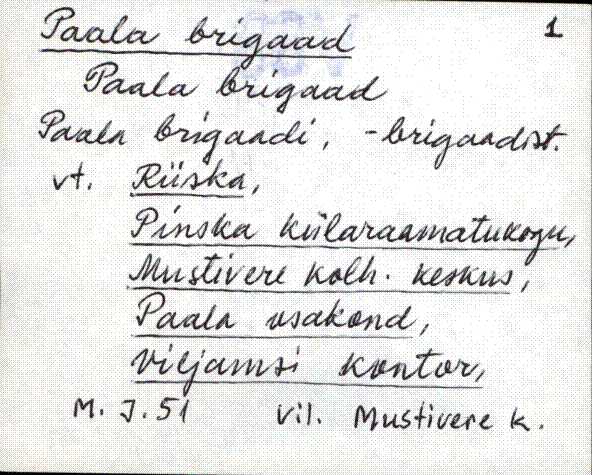 Paala brigaad 1
Paala brigaad
Paala brigaadi, -brigaadist.
vt. Riiska,
Pinska külaraamatukogu,
Mustivere kolh. keskus,
Paala osakond,
Viljamsi kontor,
M. J. 51 Vil. Mustivere k.